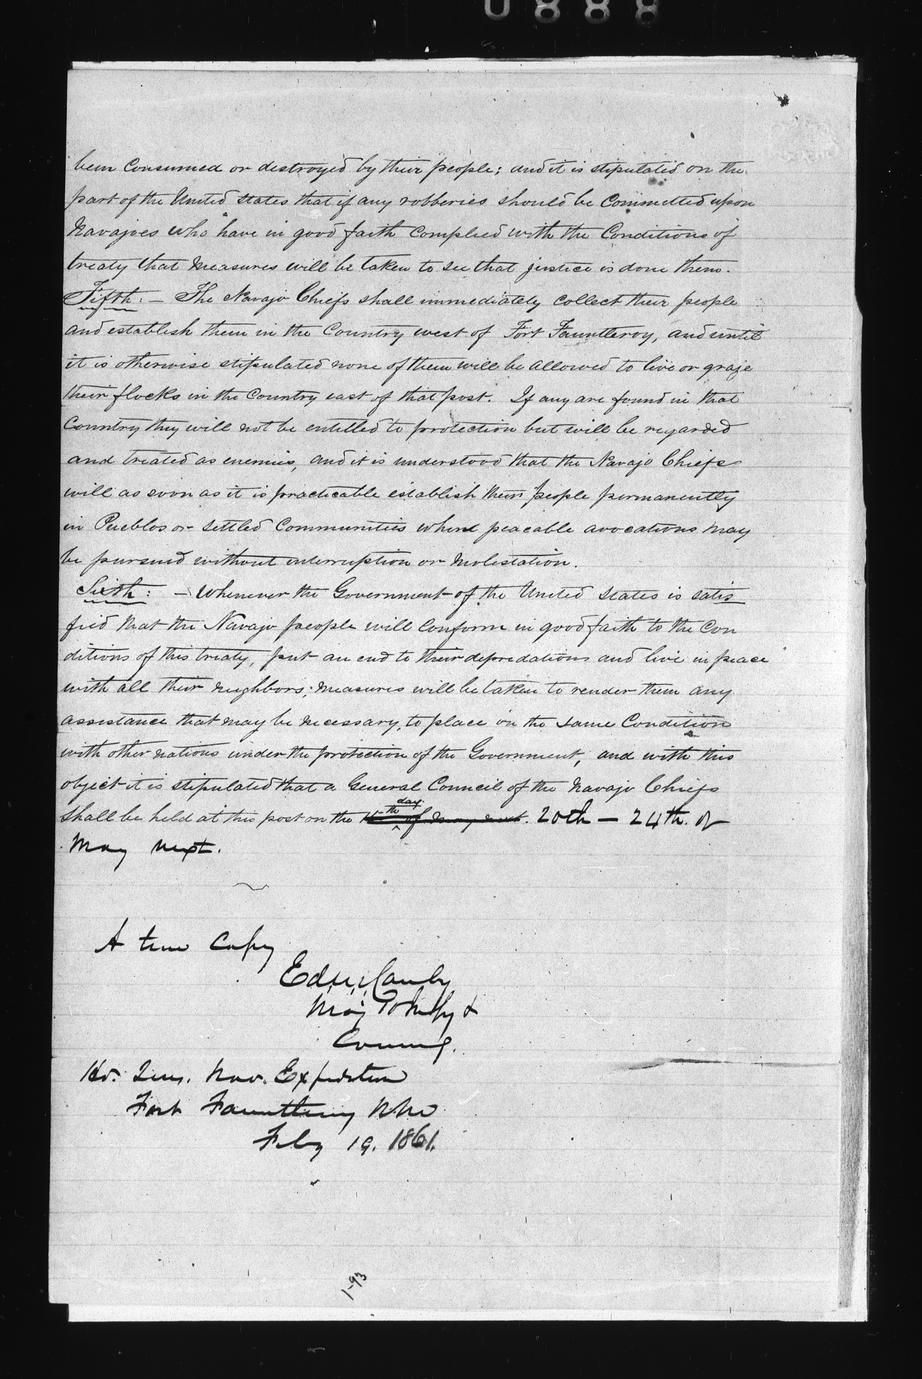 0888
been Consumed or destroyed by their people; and it is stipulated on the
part of the United States that if any robberies should be Committed upon
Navajoes who have in good faith Complied with the Conditions of
treaty that measures will be taken to see that justice is done them.
Fifth: — The Navajo Chiefs shall immediately collect their people
and establish them in the Country west of Fort Fauntleroy, and until
it is otherwise stipulated none of them will be allowed to live or graze
their flocks in the Country east of that post. If any are found in that
Country they will not be entitled to protection but will be regarded
and treated as enemies, and it is understood that the Navajo Chiefs
will as soon as it is practicable establish their people permanently
in Pueblos or settled Communities where peacable avocations may
be pursued without interruption or molestation.
Sixth: — Whenever the Government of the United States is satis
fied that the Navajo people will Conform in good faith to the Con
ditions of this treaty, put an end to their depredations and live in peace
with all their neighbors; measures will be taken to render them any
assistance that may be necessary to place on the same Condition
with other nations under the protection of the Government, and with this
object it is stipulated that a General Council of the Navajo Chiefs
day
shall be held at this post on the of May next. 20th — 24th. of
May next.
A true Copy
Ed. R. S. Canby
Maj. 10th Infy &
Comng.
Hd. Qurs. Nav. Expedition
Fort Fauntleroy NM
Feby 19. 1861.
1-93